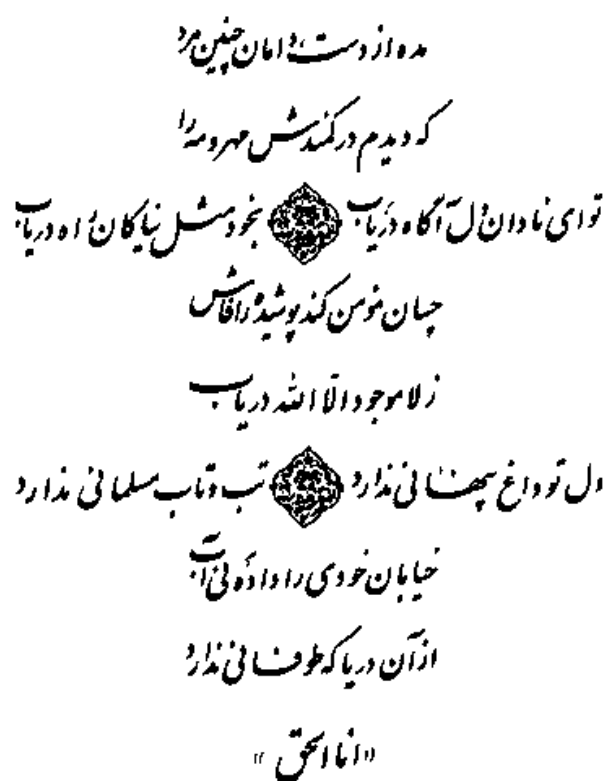 مده از دست دامان چنین مرد
که دیدم در کمندش مهر و مه را
تو ای نادان دل آگاه دریاب بخود مثل نیاکان راه دریاب
چسان مؤمن کند پوشیده را فاش
ز لا موجود الا الله دریاب
دل تو داغ پنهانی ندارد تب و تاب مسلمانی ندارد
خیابان خودی را داده ئی آب
از آن دریا که طوفانی ندارد
«انا الحق»